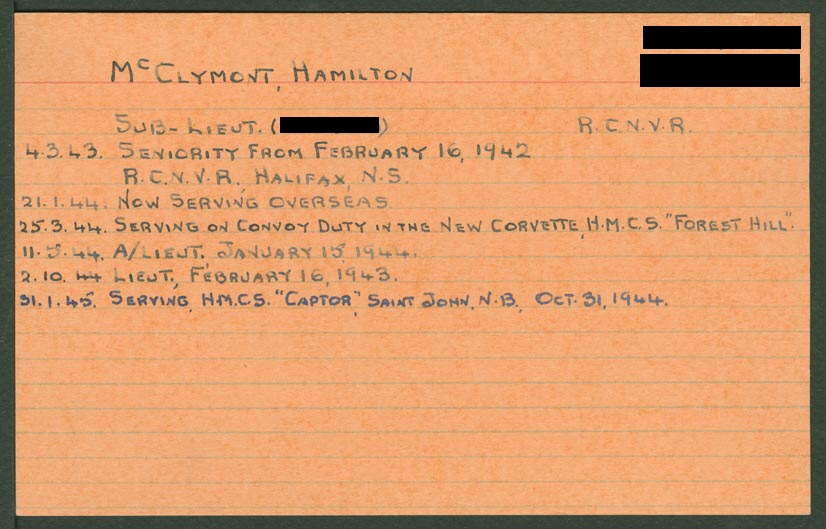 McCLYMONT, HAMILTON
SUB-LIEUT. ( ) R.C.N.V.R.
4.3.43. SENIORITY FROM FEBRUARY 16, 1942
R.C.N.V.R., HALIFAX, N.S.
21.1.44. NOW SERVING OVERSEAS.
25.3.44. SERVING ON CONVOY DUTY IN THE NEW CORVETTE, H.M.C.S. "FOREST HILL".
11.5.44. A/LIEUT. JANUARY 15, 1944.
2.10.44 LIEUT., FEBRUARY 16, 1943.
31.1.45. SERVING, H.M.C.S. "CAPTOR", SAINT JOHN, N.B., OCT. 31, 1944.